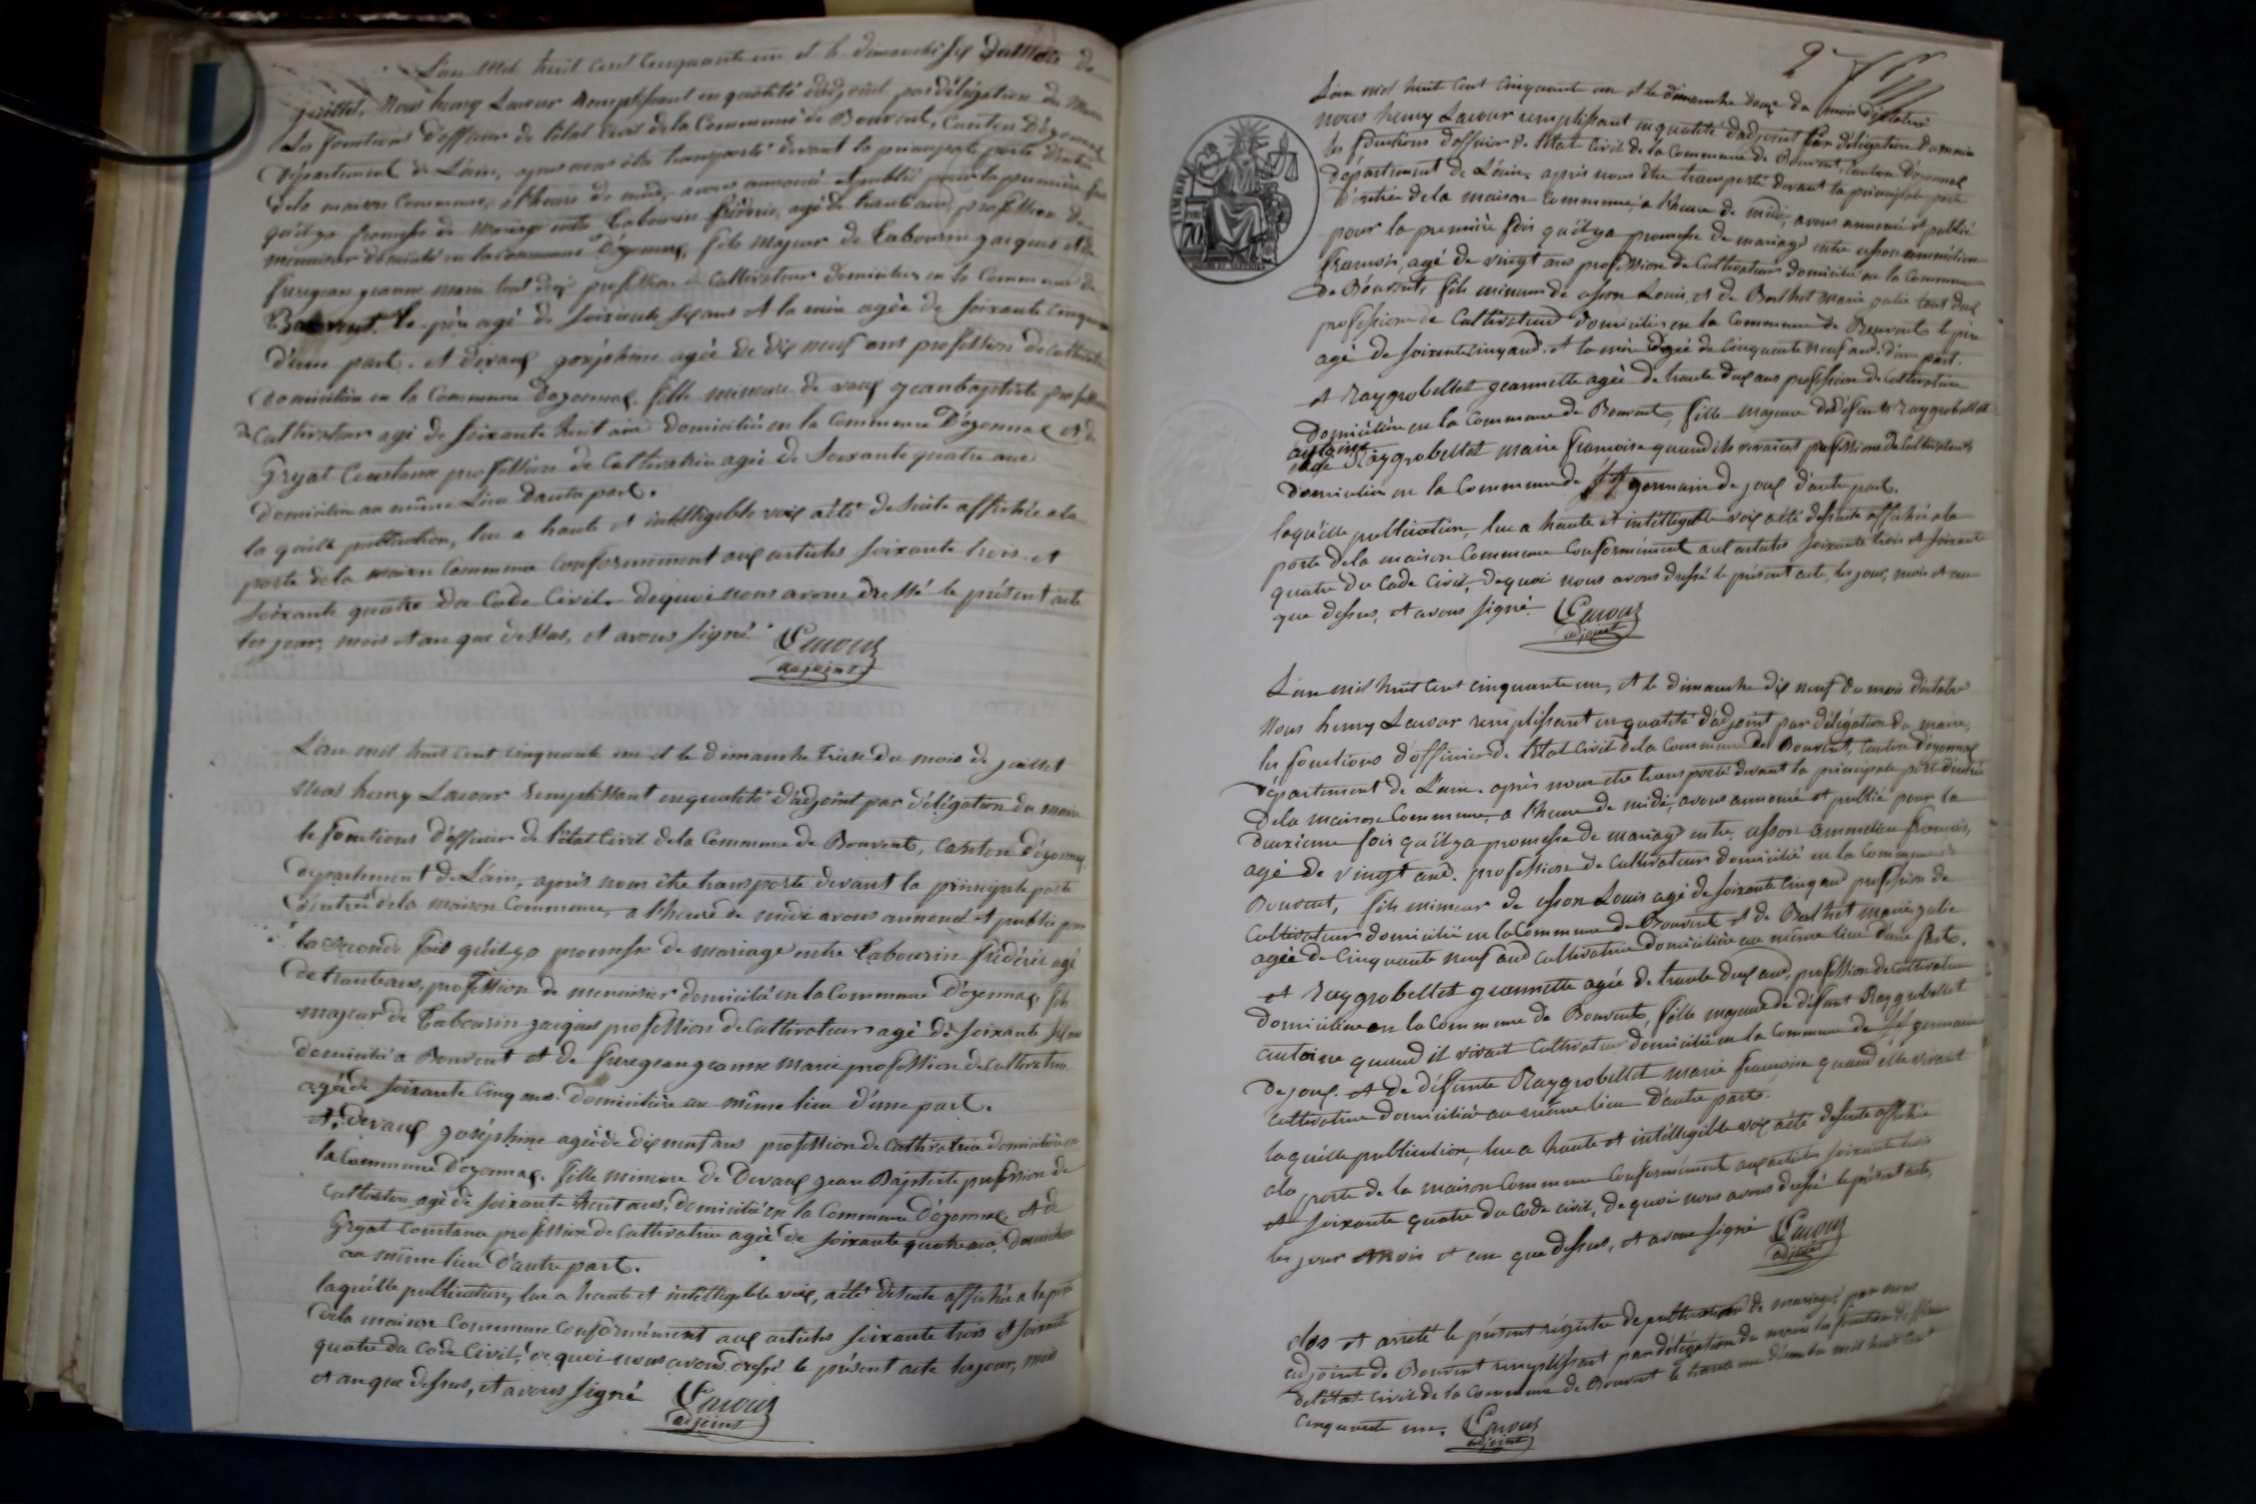 L'an mil huit cent cinquante un et le dimanche six du mois de
juillet, Nous henry Lacour remplissant en qualité d'adjoint par délégation du Maire
les fonctions d'officier de l'état civil de la Commune de Bouvent, Canton D'oyonnax
Département de L'ain, apres nous être transporté devant la principale porte d'entrée
de la maison Commune, a l'heure de midi, avons annoncé et publié pour la première fois
qu'il ya promesse de mariage entre Tabourin fréderic, agé de trente ans profession de
menuisier domicilié en la commune d'oyonnax, fils majeur de Tabourin jacques et de
jeanne marie tout deux profession de Cultivateur domiciliés en la Commune de
Bouvent. le père agé de soixante six ans et la mère agée de soixante cinq ans
d'une part. et Devaux joséphine agée de dix neuf ans profession de cultivatrice
domiciliée en la Commune d'oyonnax. fille mineure de vaux jean baptiste profession
de Cultivateur agé de soixante huit ans domicilié en la Commune D'oyonnax et de
Gryat Constance profession de Cultivatrice agée de Soixante quatre ans
domiciliée au même Lieu D'autre part.
la quelle publication, lue a haute et intelligible voix a été de suite affichée a la
porte de la maison Commune conformément aux articles soixante trois et
soixante quatre du Code Civil. de quoi nous avons dressé le présent acte
les jour, mois et an que dessus, et avons signé
Lacour
adjoint
L'an mil huit cent cinquante un et le dimanche treize du mois de juillet
Nous henry Lacour remplissant en qualité d'adjoint par délégation du maire
les fonctions d'officier de l'état Civil de la Commune de Bouvent, canton d'oyonnax
département de L'ain, après nous être transporté devant la principale porte
d'entrée de la maison Commune, a l'heure de midi avons annoncé et publié pour
la seconde fois qu'il ya promesse de mariage entre Tabourin frédéric agé
de trente ans, profession de menuisier domicilié en la Commune D'oyonnax fils
majeur de Tabourin jacques profession de Cultivateur agé de soixante six ans
domicilié a Bouvent et de jeanne Marie profession de Cultivatrice
agée de soixante cinq ans. domiciliée au même lieu d'une part.
et Devaux joséphine agée de dix neuf ans profession de Cultivatrice domiciliée en
la Commune d'oyonnax. fille mineure de Devaux jean Baptiste profession de
Cultivateur agé de soixante huit ans, domicilié en la Commune d'oyonnax et de
Gryat Constance profession de Cultivatrice agée de soixante quatre ans, domiciliée
au même lieu d'autre part.
laquelle publication, lue a haute et intelligible voix, a été de suite affichée a la porte
de la maison Commune Conformément aux articles soixante trois et soixante
quatre du Code Civil, de quoi nous avons dressé le présent acte les jour, mois
et an que dessus, et avons signé
Lacour
adjoint
27
L'an mil huit cent cinquante un et le dimanche douze du mois d'octobre
nous henry Lacour remplissant en qualité d'adjoint par délégation du maire
les fonctions d'officier de l'état civil de la Commune de Bouvent, Canton D'oyonnax
département de L'ain, après nous être transporté devant la principale porte
d'entrée de la maison Commune, a l'heure de midi, avons annoncé et publié
pour la première fois qu'il ya promesse de mariage entre
francois, agé de vingt ans profession de Cultivateur domicilié en la Commune
de Bouvent, fils mineur de Louis et de marie julie tout deux
profession de Cultivateur domiciliés en la Commune de Bouvent le père
agé de soixante cinq ans et la mère agée de cinquante neuf ans d'une part.
et Raygrobellet jeannette agée de trente deux ans profession de Cultivatrice
domiciliée en la Commune de Bouvent, fille majeure de défunts Raygrobellet
antoine
et de Raygrobellet marie francoise quand ils vivaient profession de Cultivateurs
domiciliés en la Commune de St germain de joux d'autre part.
laquelle publication, lue a haute et intelligible voix a été de suite affichée a la
porte de la maison Commune conformément aux articles soixante trois et soixante
quatre du Code Civil, de quoi nous avons dressé le présent acte, les jour, mois et an
que dessus, et avons signé.
Lacour
adjoint
L'an mil huit cent cinquante un, et le dimanche dix neuf du mois d'octobre
Nous henry Lacour remplissant en qualité d'adjoint par délégation du maire,
les fonctions d'officier de l'état civil de la Commune de Bouvent, Canton d'oyonnax
département de L'ain. après nous être transporté devant la principale porte d'entrée
de la maison Commune, a l'heure de midi, avons annoncé et publié pour la
deuxieme fois qu'il ya promesse de mariage entre francois,
agé de vingt ans. profession de Cultivateur domicilié en la Commune de
Bouvent, fils mineur de Louis agé de soixante cinq ans profession de
Cultivateur domicilié en la Commune de Bouvent et de marie julie
agée de Cinquante neuf ans Cultivatrice domiciliée au même lieu d'une part.
et Raygrobellet jeannette agée de trente deux ans, profession de Cultivatrice
domiciliée en la Commune de Bouvent, fille majeure de défunt Raygrobellet
antoine quand il vivait Cultivateur domicilié en la Commune de St germain
de joux. et de défunte Raygrobellet marie francoise quand elle vivait
cultivatrice domiciliée au même lieu d'autre part.
laquelle publication, lue a haute et intelligible voix a été de suite affichée
a la porte de la maison Commune Conformément aux articles soixante trois
et soixante quatre du Code civil, de quoi nous avons dressé le présent acte,
les jour mois et an que dessus, et avons signé
Lacour
adjoint
clos et arreté le présent régistre de publication de mariages par nous
adjoint de Bouvent remplissant par délégation du maire les fonctions d'officier
de l'état Civil de la Commune de Bouvent le trente un décembre mil huit cent
cinquante un.
Lacour
adjoint